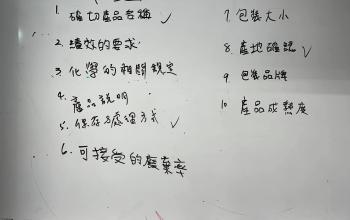 1. 確切產品名稱
2. 績效的要求
3. 化學的相關規定
4. 產品說明
5. 保存及處理方式 ✓
6. 可接受的廢棄率
7. 包裝大小
8. 產地確認 ✓
9. 包裝品牌
10. 產品成熟度